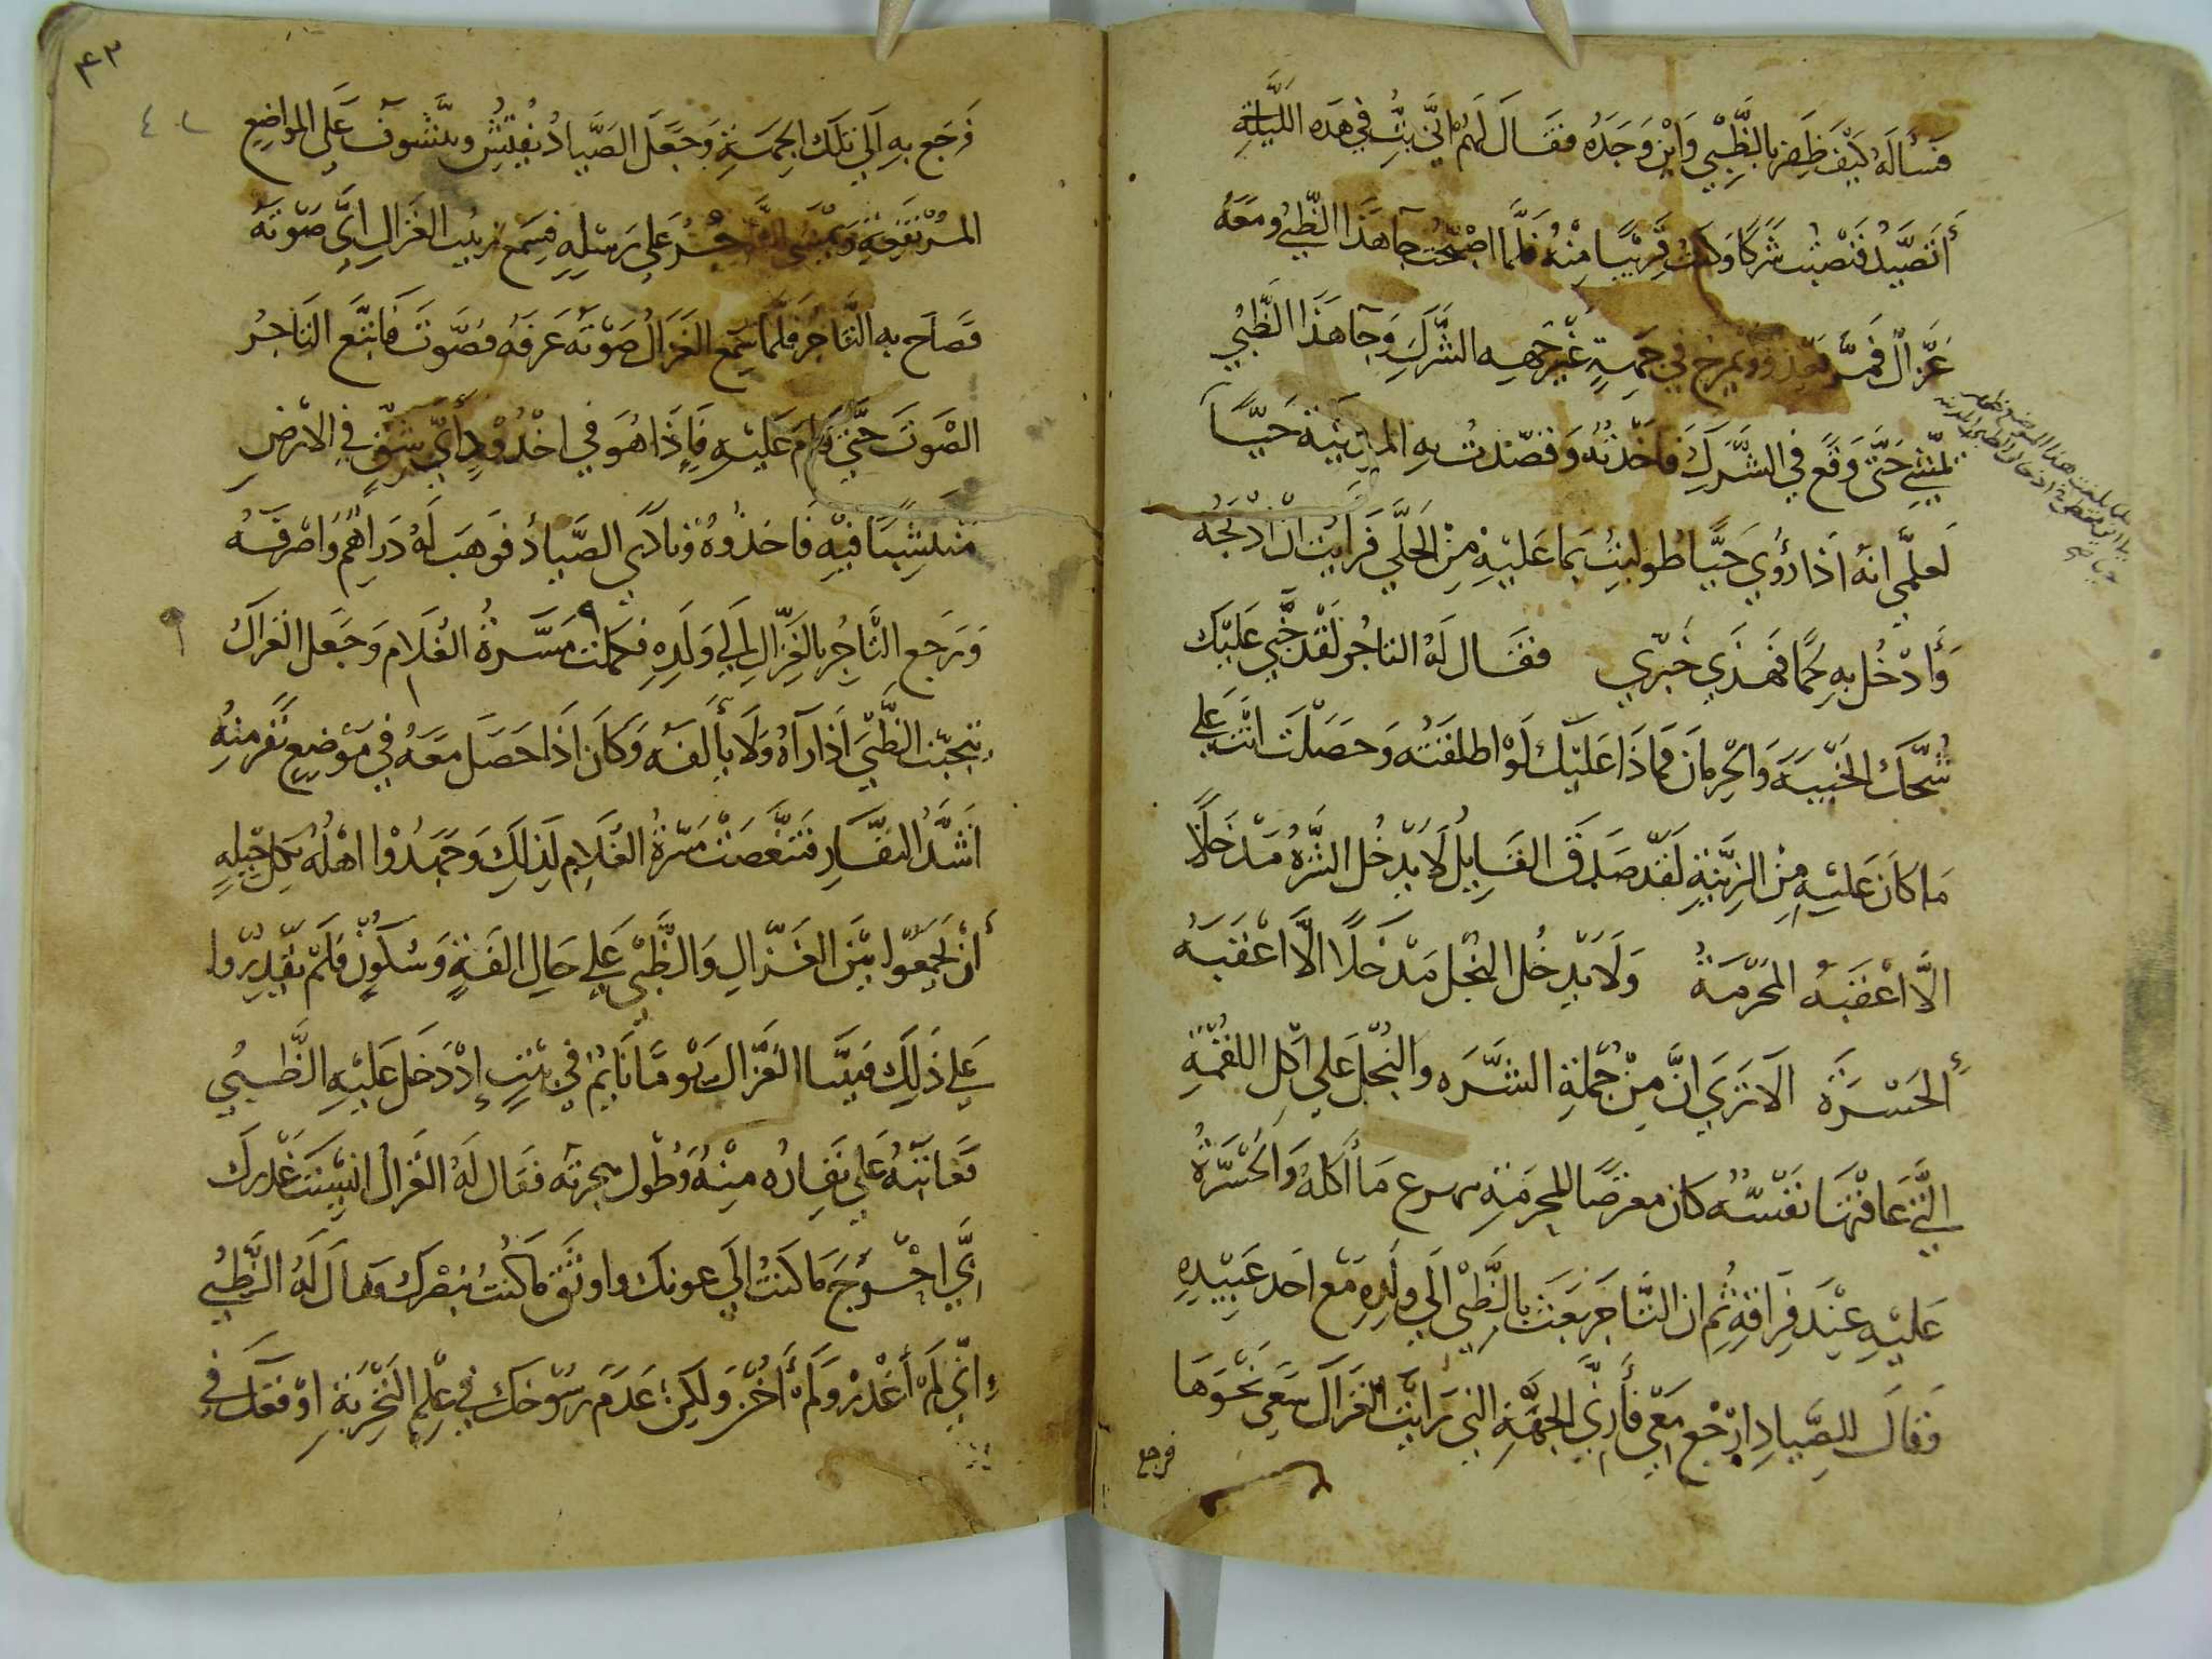 فسأله كَيْفَ ظَفِرَ بالظَّبْيِ وَاين وَجَدَهُ فقَالَ لَهُمْ اني بتُّ في هَذه اللَّيْلَةِ
أتصَيَّدُ فنَصَبْتُ شَرَكًا وَكنتُ قَرِيْبًا مِنْهُ فَلَمَّا اصْبَحْتُ جآ هَذَا الظَّبْيُ ومعَهُ
غزَالٌ فمَرَّ يَعْدُو ويمرح في جهةٍ غَيْرَ جهَةِ الشَّرَكِ وَجآ هَذَا الظَّبْي
يمْشِي حَتَّى وَقَعَ في الشَّرَكِ فَأخَذْتُهُ وَقصَدْتُ بِهِ المدِيْنَة حَيًّا
لعلمي انهُ اذَا رُؤي حَيًّا طُولبْتُ بمَا عَليْهِ مِنَ الحلي فَرَأيْتُ ان اذْبحَهُ
وَأدْخُل به لحمًا فهَذَي خبَري فقَالَ لهُ التاجرُ لَقَدْ جَنَي عَلَيْكَ
شُحَّكَ الخَيْبَةَ وَالحِرمَان فمَاذَا عَليْكَ لَوْ اطلقتَه وَحَصَلْتَ انْتَ عَلَى
مَا كَانَ عَلَيْهِ مِنَ الزِيْنَةِ لقَدْ صَدَقَ القَايِلُ لَا يَدْخُل الشَّرَهُ مَدْخَلًا
الَّا اعْقَبَهُ المَحْرَمَةُ وَلَا يَدْخُل البُخْل مَدْخَلًا الَّا اعْقَبَهُ
الحَسْرَة الَا تَرَى انَّ مِنْ جُمْلَةِ الشَّرَه والبُخْل عَلَى اكْلِ اللقْمَةِ
الَّتِي عَافَتْهَا نَفْسُهُ كان معرضًا للمحرمَة مَا أكلهُ وَالحَسْرَةُ
عَلَيْهِ عِنْدَ فِرَاقِهِ ثُم ان التَّاجَر بَعَثَ بالظَّبْيِ الَى ولَدِهِ مَع احَد عَبِيْدِهِ
وَقالَ للصَّيادِ ارْجع مَعي فَأرِنِي الجهَةَ التي رَايْتَ الغَزَالَ سَعَي نَحْوَهَا
فرجع
٤٣
فَرَجَع بِهِ اَلَي تلكَ الجِهَةِ وَجَعَلَ الصَّيادُ يُفتِّشُ ويتَشَوف عَلَى المواضِع
المرْتفعَةِ وَيمْشي التَّاجرُ عَلي رسْلِهِ فسَمعَ الغزَالِ اي صَوْتَهُ
فصَاحَ به التَّاجرُ فلمَّا سَمِعَ الغَزَالُ صَوْتَهُ عَرَفَهُ فصَوتَ فَاتبَع التَاجرُ
الصَوتَ حَتَّى قامَ عَلَيْهِ فإذَا هُوَ في اخْدُوْدٍ أي شِقٍّ في الارْضِ
مُنْتشِبًا فيْهِ فَاخذُوهُ وَنادَي الصَّيادُ فوَهَبَ لَهُ دَرَاهِمَ وَاصْرفَهُ
وَرَجَع التَّاجِرُ بالغزَالِ الَي وَلَدِهِ فكمَلَتْ مَسَّرةُ الغُلَامِ وَجَعَل الغزَالُ
يتجَنَّب الظَّبْيَ اذَا رَآهُ وَلَا يأْلَفَه وَكَانَ اذَا حَصَل مَعَهُ في مَوْضِعٍ نَفَرَ مِنهُ
اشَدَّ النفَارِ فتَنَغَّصَتْ مَسَرَةُ الغُلَامِ لِذَلِكَ وَجَهِدُوْا اهْلُهُ بكُلِ حِيْلَةٍ
أنْ يَجْمَعُوا بَيْنَ الغَزَالِ وَالظَّبْي عَلَى حَالِ الفَةٍ وَسُكُوْنٍ فلَمْ يَقْدِرُوا
عَلي ذَلِكَ فبَيْنَا الغَزَالُ يَوْمًا نَايِمٌ في بَيْتٍ إِذْ دَخَلَ عَلَيْهِ الظَّبْيُ
فعَاتَبَهُ عَلى نِفَارِه مِنْهُ وَطُول هجرته فقَال لَهُ الغَزَالُ انَسِيْتَ غَدْرَكَ
بي احْوَجَ مَا كنتُ الَى عونكَ واوثَقَ مَا كُنتُ بنصْرِكَ فقَالَ لَهُ الظَّبْي
إِنِّي لَمْ أغْدُرْ وَلَمْ أخُنْ وَلكِن عَدَمُ رسُوْخكَ في عِلْمِ التجْرُبَةِ اوْقعَكَ في